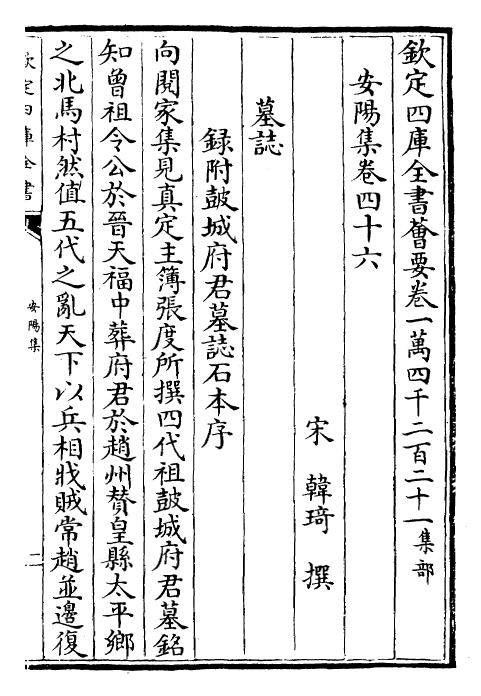 欽定四庫全書薈要卷一萬四千二百二十一集部
安陽集卷四十六
宋 韓琦 撰
墓誌
録附鼓城府君墓誌石本序
向閱家集見真定主簿張度所撰四代祖鼓城府君墓銘
知曾祖令公於晉天福中葬府君於趙州賛皇縣太平鄉
之北馬村然值五代之亂天下以兵相戕賊常趙並邊復
欽定四庫全書
安陽集